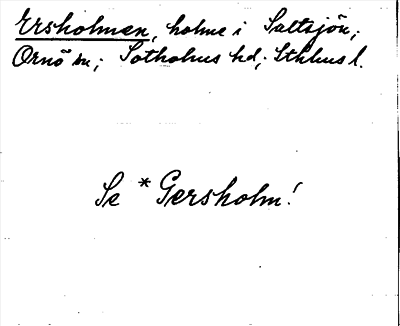 Ersholmen, holme i Saltsjön,
Ornö sn; Sotholms hd; Sthlms l.
Se *Gersholm!